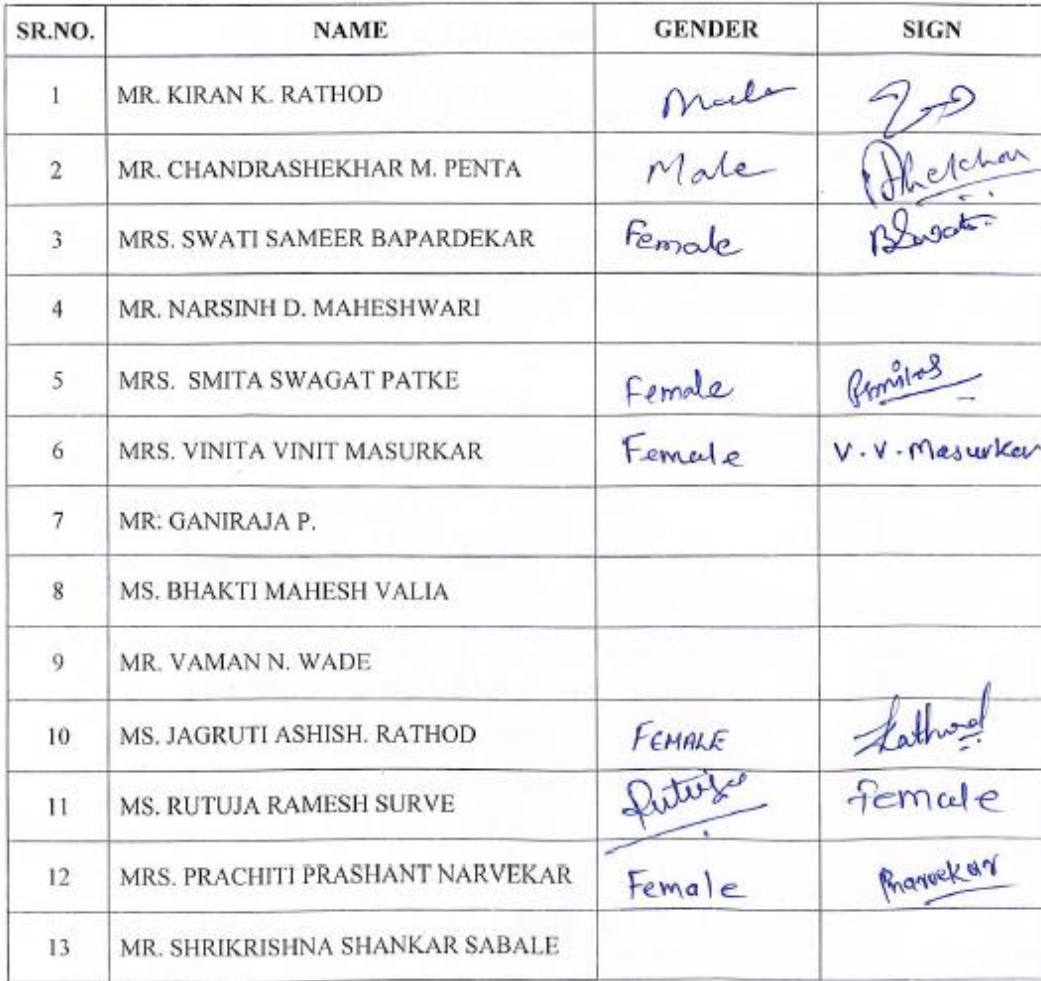 SR.NO. NAME GENDER SIGN
1 MR. KIRAN K. RATHOD Male
2 MR. CHANDRASHEKHAR M. PENTA Male
3 MRS. SWATI SAMEER BAPARDEKAR Female BSwati
4 MR. NARSINH D. MAHESHWARI
5 MRS. SMITA SWAGAT PATKE Female
6 MRS. VINITA VINIT MASURKAR Female V.V.Masurkar
7 MR. GANIRAJA P.
8 MS. BHAKTI MAHESH VALIA
9 MR. VAMAN N. WADE
10 MS. JAGRUTI ASHISH. RATHOD FEMALE Rathod
11 MS. RUTUJA RAMESH SURVE Rutuja Female
12 MRS. PRACHITI PRASHANT NARVEKAR Female Pnarvekar
13 MR. SHRIKRISHNA SHANKAR SABALE